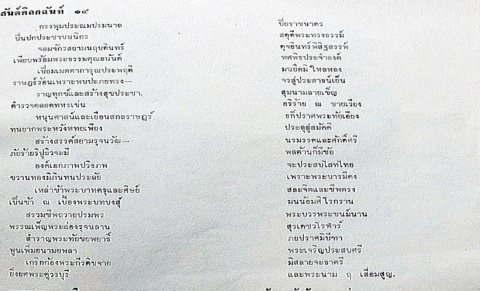 สันต์ติลกฉันท์ ๑๔
กรวพุมประณมปรมนาถ ปิยราชนาคร
ปิ่นปกประชาชนนิกร สดุดีพระทรงธรรม์
จอมจักรสยามนฤบดินทร์ ดุจอินทร์พิสิฐสรรพ์
เพียบพร้อมพระธรรมคุณอนันต์ ทศพิธประจำองค์
เปี่ยมเมตตาการุณประพฤติ มนยึดมิใหลหลง
ราษฎร์ร้อนเพราะพบประภยทรง จรสู่ประสาทเย็น
ราญทุกข์และสร้างสุขประชา สุมนามลายเข็ญ
ดำรวจตลอดทหรเข่น อริร้าย ณ ชายเวียง
หนุนศาสน์และเยือนสกลราษฎร์ ธก็ปราศพระทัยเอียง
ทนยากพระหวังหทยเพียง ประดุงสู่สมัคคี
สร้างสรรค์สยามรุจนวัฒ— นวมรรคและศักดิ์ศรี
ภัยร้ายริปูผิวจะมี พลต้านก็มีชัย
องค์เอกภาพปวิรภพ จะประสบไสวไทย
ขวานทองมิภินทนประลัย เพราะพระบารมีคง
เหล่าข้าพระบาทครุและศิษย์ สละจิตและชีพตรง
เป็นข้า ณ เบื้องพระบทบงสุ์ มนน้อมศิโรกราน
สรวมชีพถวายปรมพร พระบวรพระชนม์นาน
พรรณเพ็ญพระผ่องรุจนลาน สุรเดชวโรฬาร์
สำราญพระทัยขยพยาธิ์ ภยปราศมิบีฑา
พูนเพิ่มอนามยพลา พระเจริญประสบศรี
เกริกก้องพระกีรติขจาย มิสลายจะธาตรี
ยิ่งยศพระคู่วรบุรี และพระนาม ฤ เสื่อมสูญ.